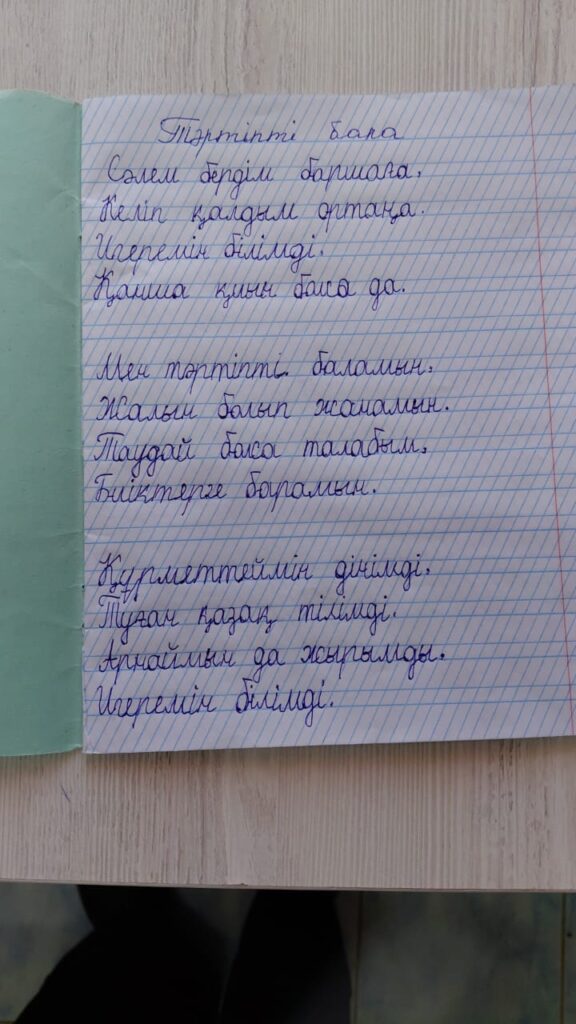 Тәртіпті бала
Сәлем бердім баршаға.
Келіп қалдым ортаңа.
Игеремін білімді.
Қанша қиын болса да.
Мен тәртіпті баламын.
Жалын болып жанамын.
Таудай болса талабым,
Биіктерге барамын.
Құрметтеймін дінімді.
Туған қазақ тілімді.
Арнаймын да жырымды.
Игеремін білімді.